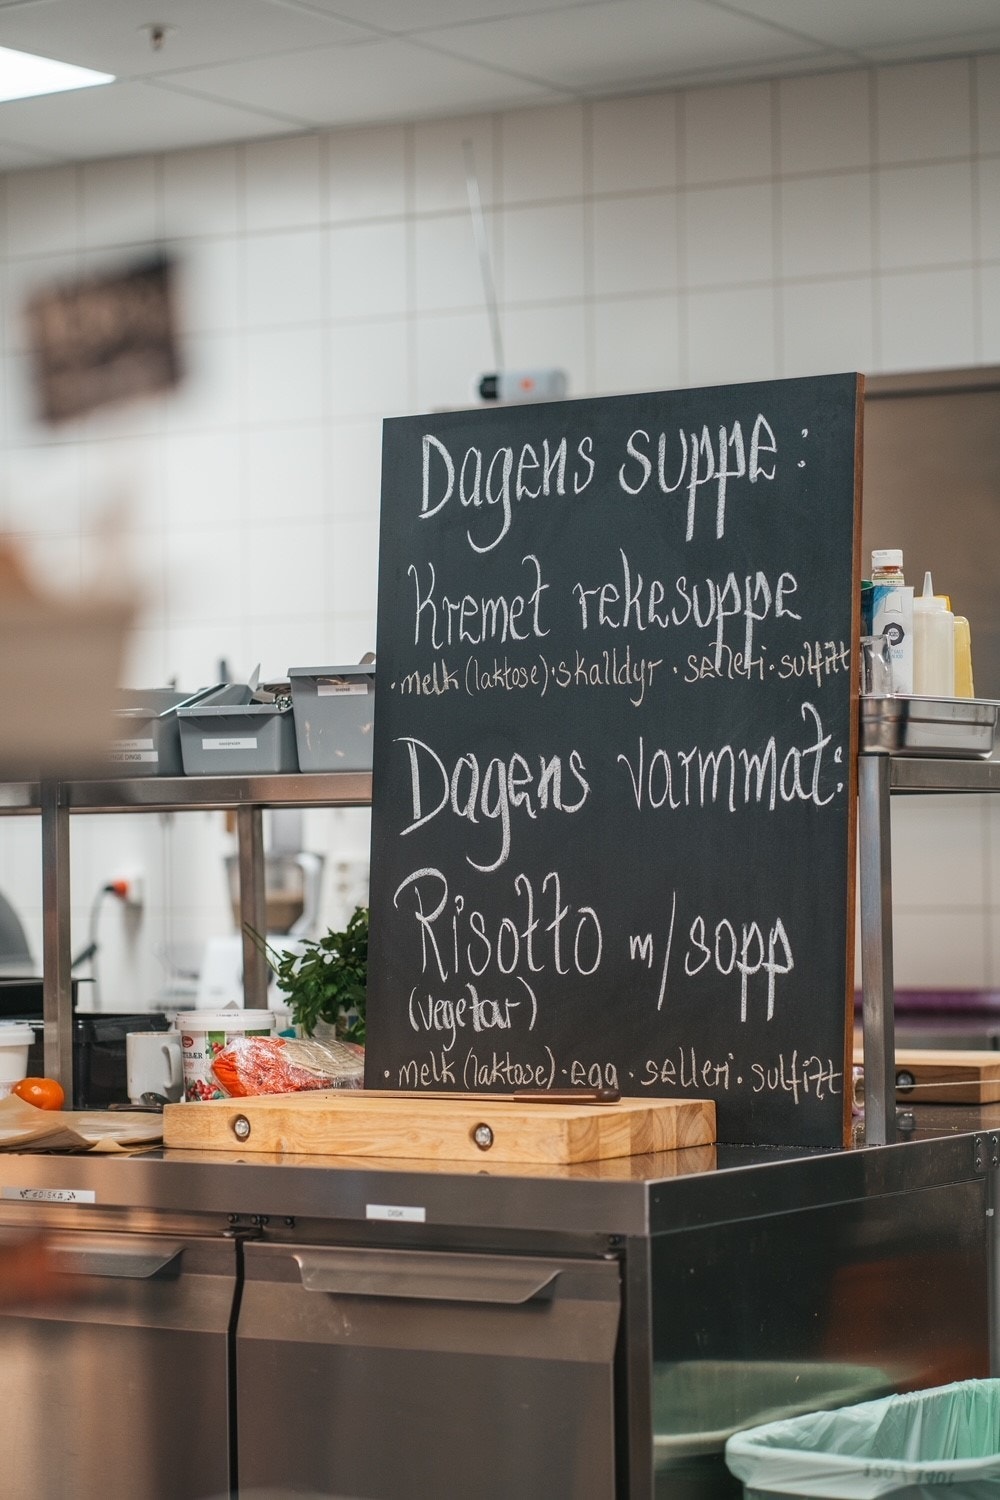 Dagens suppe:
Kremet rekesuppe
• melk (laktose) • skalldyr • selleri • sulfitt
Dagens varmmat:
Risotto m/sopp
(vegetar)
• melk (laktose) • egg • selleri • sulfitt
DISK